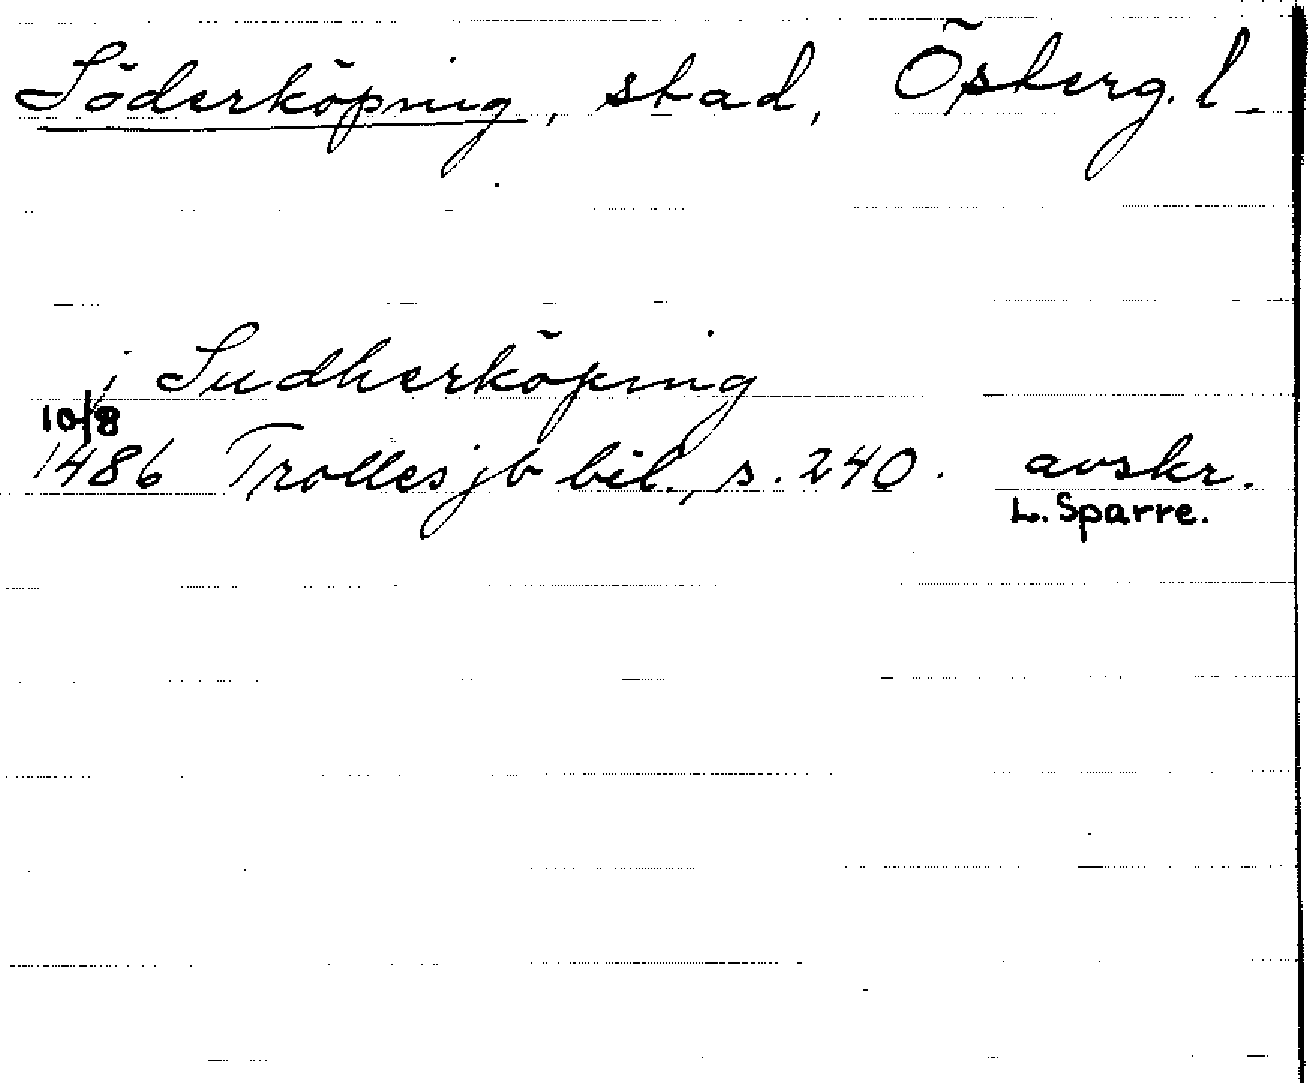 Söderköping, stad, Österg. l.
j Sudherköping
10/8
1486 Trolles jb bil., s. 240. avskr.
L. Sparre.